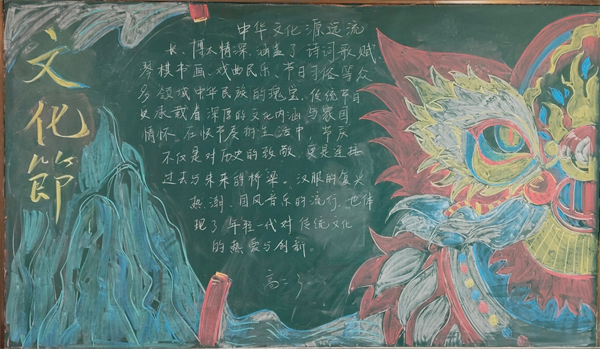 文化節
中华文化源远流
长、博大精深,涵盖了诗词歌赋、
琴棋书画、戏曲民乐、节日习俗等众
多领域中华民族的瑰宝,传统节日
承载着深厚的文化内涵与家国
情怀。在快节奏的生活中,节庆
不仅是对历史的致敬,更是连接
过去与未来的桥梁。汉服的复兴
热潮、国风音乐的流行,也体
现了年轻一代对传统文化
的热爱与创新。
高二